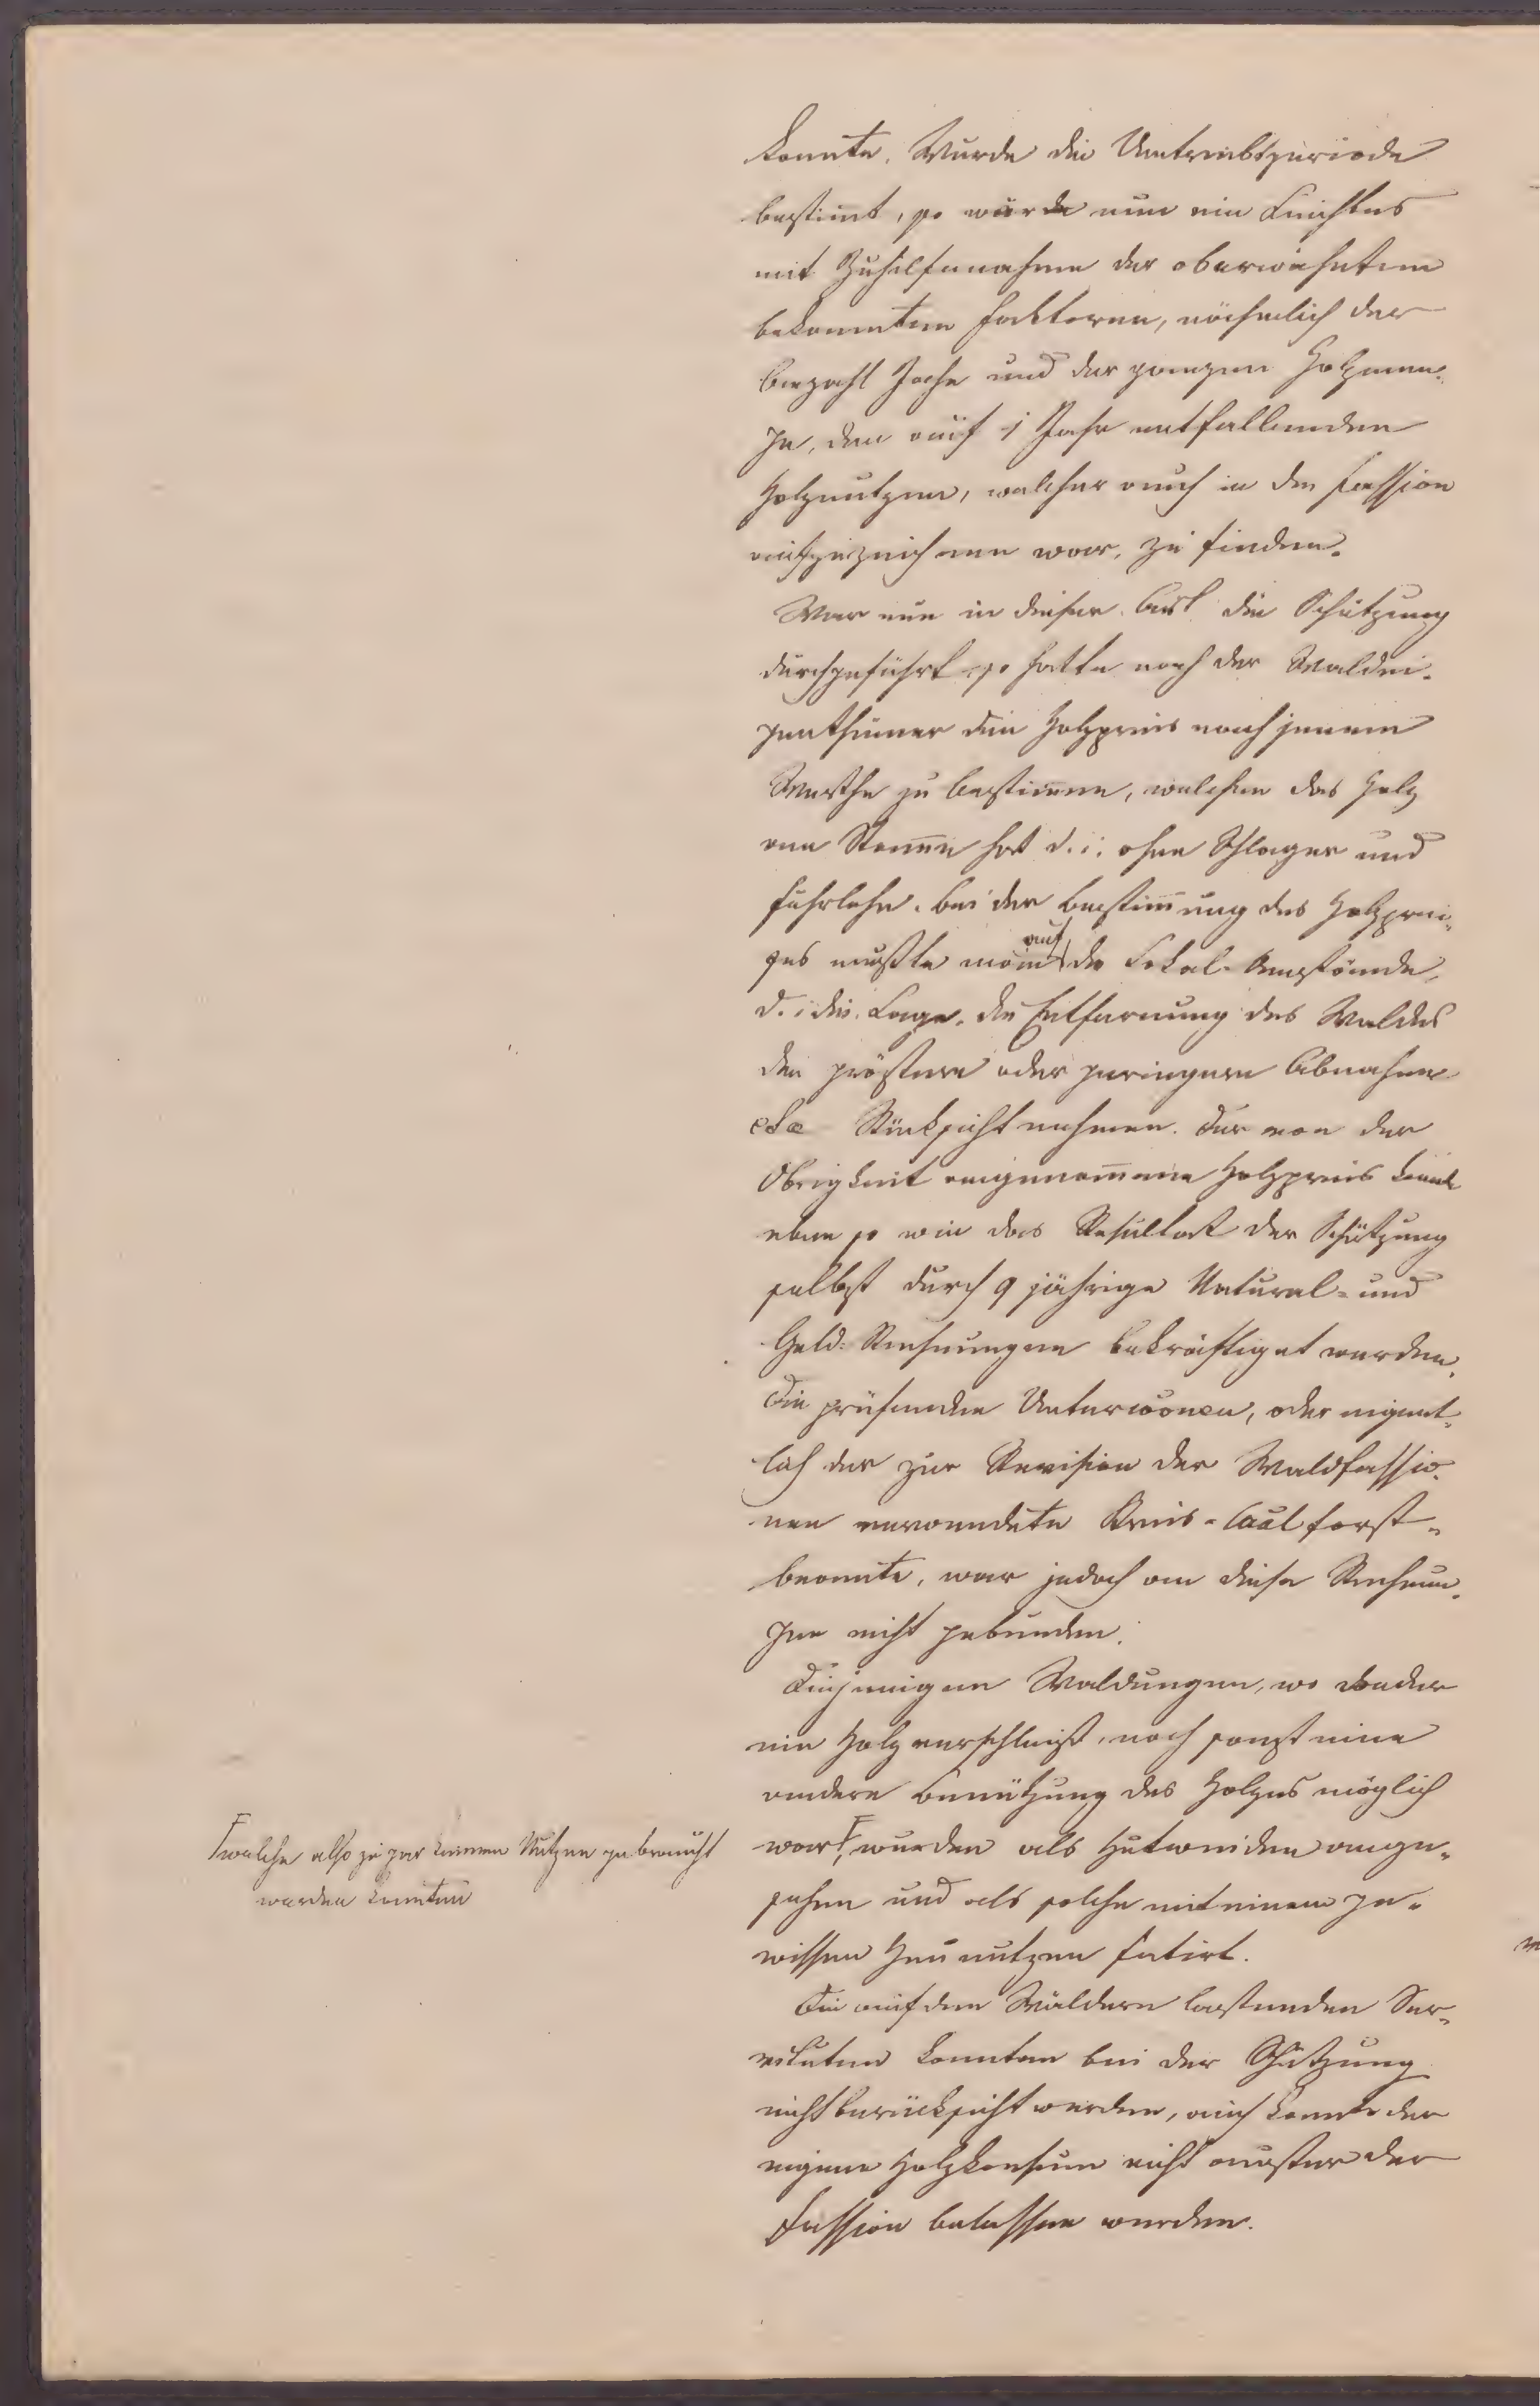 konnte. Wurde die Umtriebsperiode
bestim̄t, so würde nun ein Leichtes
mit Zuhilfenahme der oberwähnten
bekannten Faktoren, nähmlich der
Anzahl Joche und der ganzen Holzmen-
ge, den auf 1 Jahr entfallenden
Holznutzen, welcher auch in der Fassion
aufzuzeichnen war, zu finden.
War nun in dieser Art die Schätzung
durchgeführt so hatte noch der Waldei-
genthümer den Holzpreis nach jenem
Werthe zu bestim̄en, welchen das Holz
am Stam̄e hat d. i. ohne Schlager und
Fuhrlohn. Bei der Bestim̄ung des Holzprei-
ses mußte man auf die Lokal-Umstände,
d. i. die Lage, die Entfernung des Waldes
den größern oder geringern Abnahme
etc Rücksicht nehmen. Der von der
Obrigkeit angenom̄ene Holzpreis konnte
eben so wie das Resultat der Schätzung
selbst durch 9 jährige Natural- und
Geld-Rechnungen bekräftiget werden.
Die prüfenden Unteror̄en, oder eigent-
lich der zur Revision der Waldfassio-
nen verwendete Kreis-Caal forst-
beamte, war jedoch an diese Rechnun-
gen nicht gebunden.
Diejenigen Waldungen, wo weder
ein Holzverschleiß, noch sonst eine
andere Benützung des Holzes möglich
war Γ, wurden als Hutweiden ange-
Γ welche also zu gar keinem Nutzen gebraucht
werden konnten
sehen und als solche mit einem ge-
wissen Heunutzen fatirt.
Die auf den Wäldern lastenden Ser-
vituten konnten bei der Schätzung
nicht berücksicht werden, auch konnte der
eigene Holzkonsum nicht außer der
Fassion belassen werden.